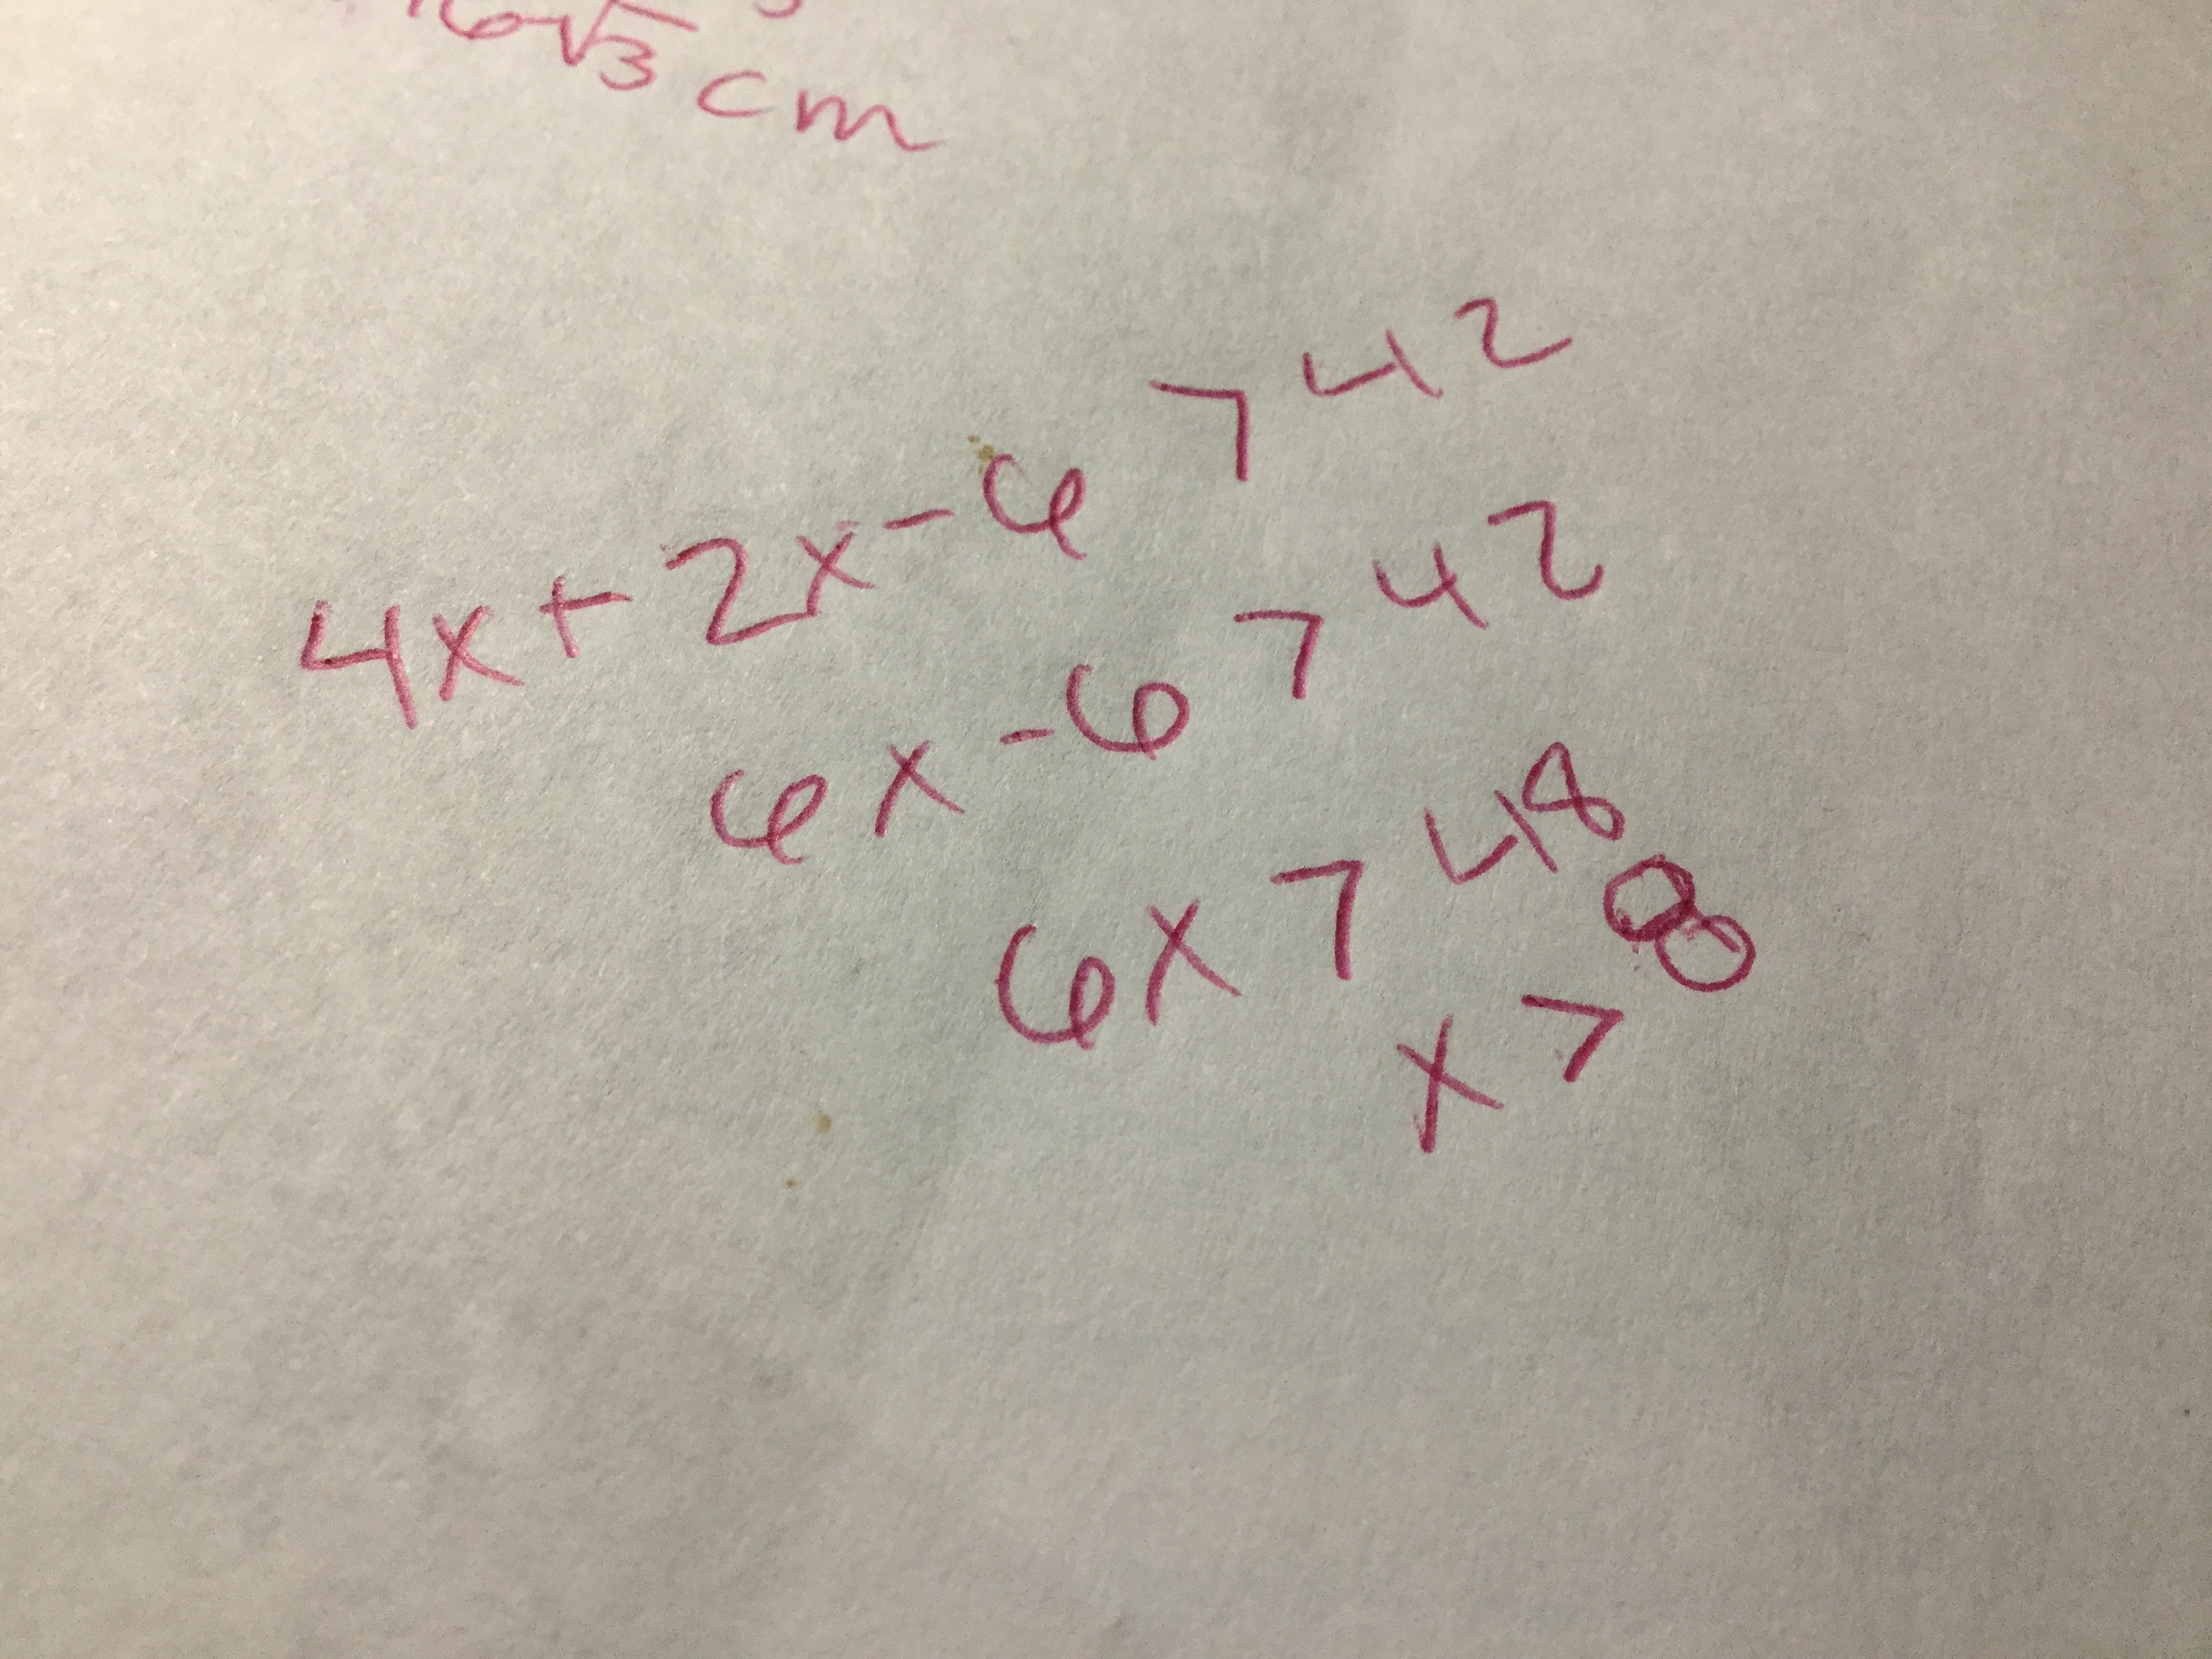 6√3 cm
4x + 2x - 6 > 42
6x - 6 > 42
6x > 48
x > 8